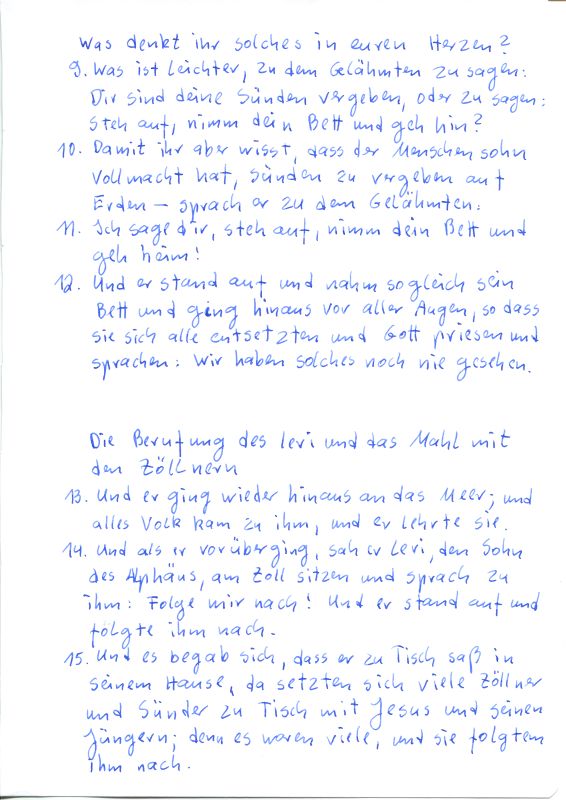 Was denkt ihr solches in euren Herzen?
9. Was ist leichter, zu dem Gelähmten zu sagen:
Dir sind deine Sünden vergeben, oder zu sagen:
steh auf, nimm dein Bett und geh hin?
10. Damit ihr aber wisst, dass der Menschensohn
Vollmacht hat, Sünden zu vergeben auf
Erden – sprach er zu dem Gelähmten:
11. Ich sage dir, steh auf, nimm dein Bett und
geh heim!
12. Und er stand auf und nahm sogleich sein
Bett und ging hinaus vor aller Augen, so dass
sie sich alle entsetzten und Gott priesen und
sprachen: Wir haben solches noch nie gesehen.
Die Berufung des Levi und das Mahl mit
den Zöllnern
13. Und er ging wieder hinaus an das Meer; und
alles Volk kam zu ihm, und er lehrte sie.
14. Und als er vorüberging, sah er Levi, den Sohn
des Alphäus, am Zoll sitzen und sprach zu
ihm: Folge mir nach! Und er stand auf und
folgte ihm nach.
15. Und es begab sich, dass er zu Tisch saß in
seinem Hause, da setzten sich viele Zöllner
und Sünder zu Tisch mit Jesus und seinen
Jüngern; denn es waren viele, und sie folgten
ihm nach.